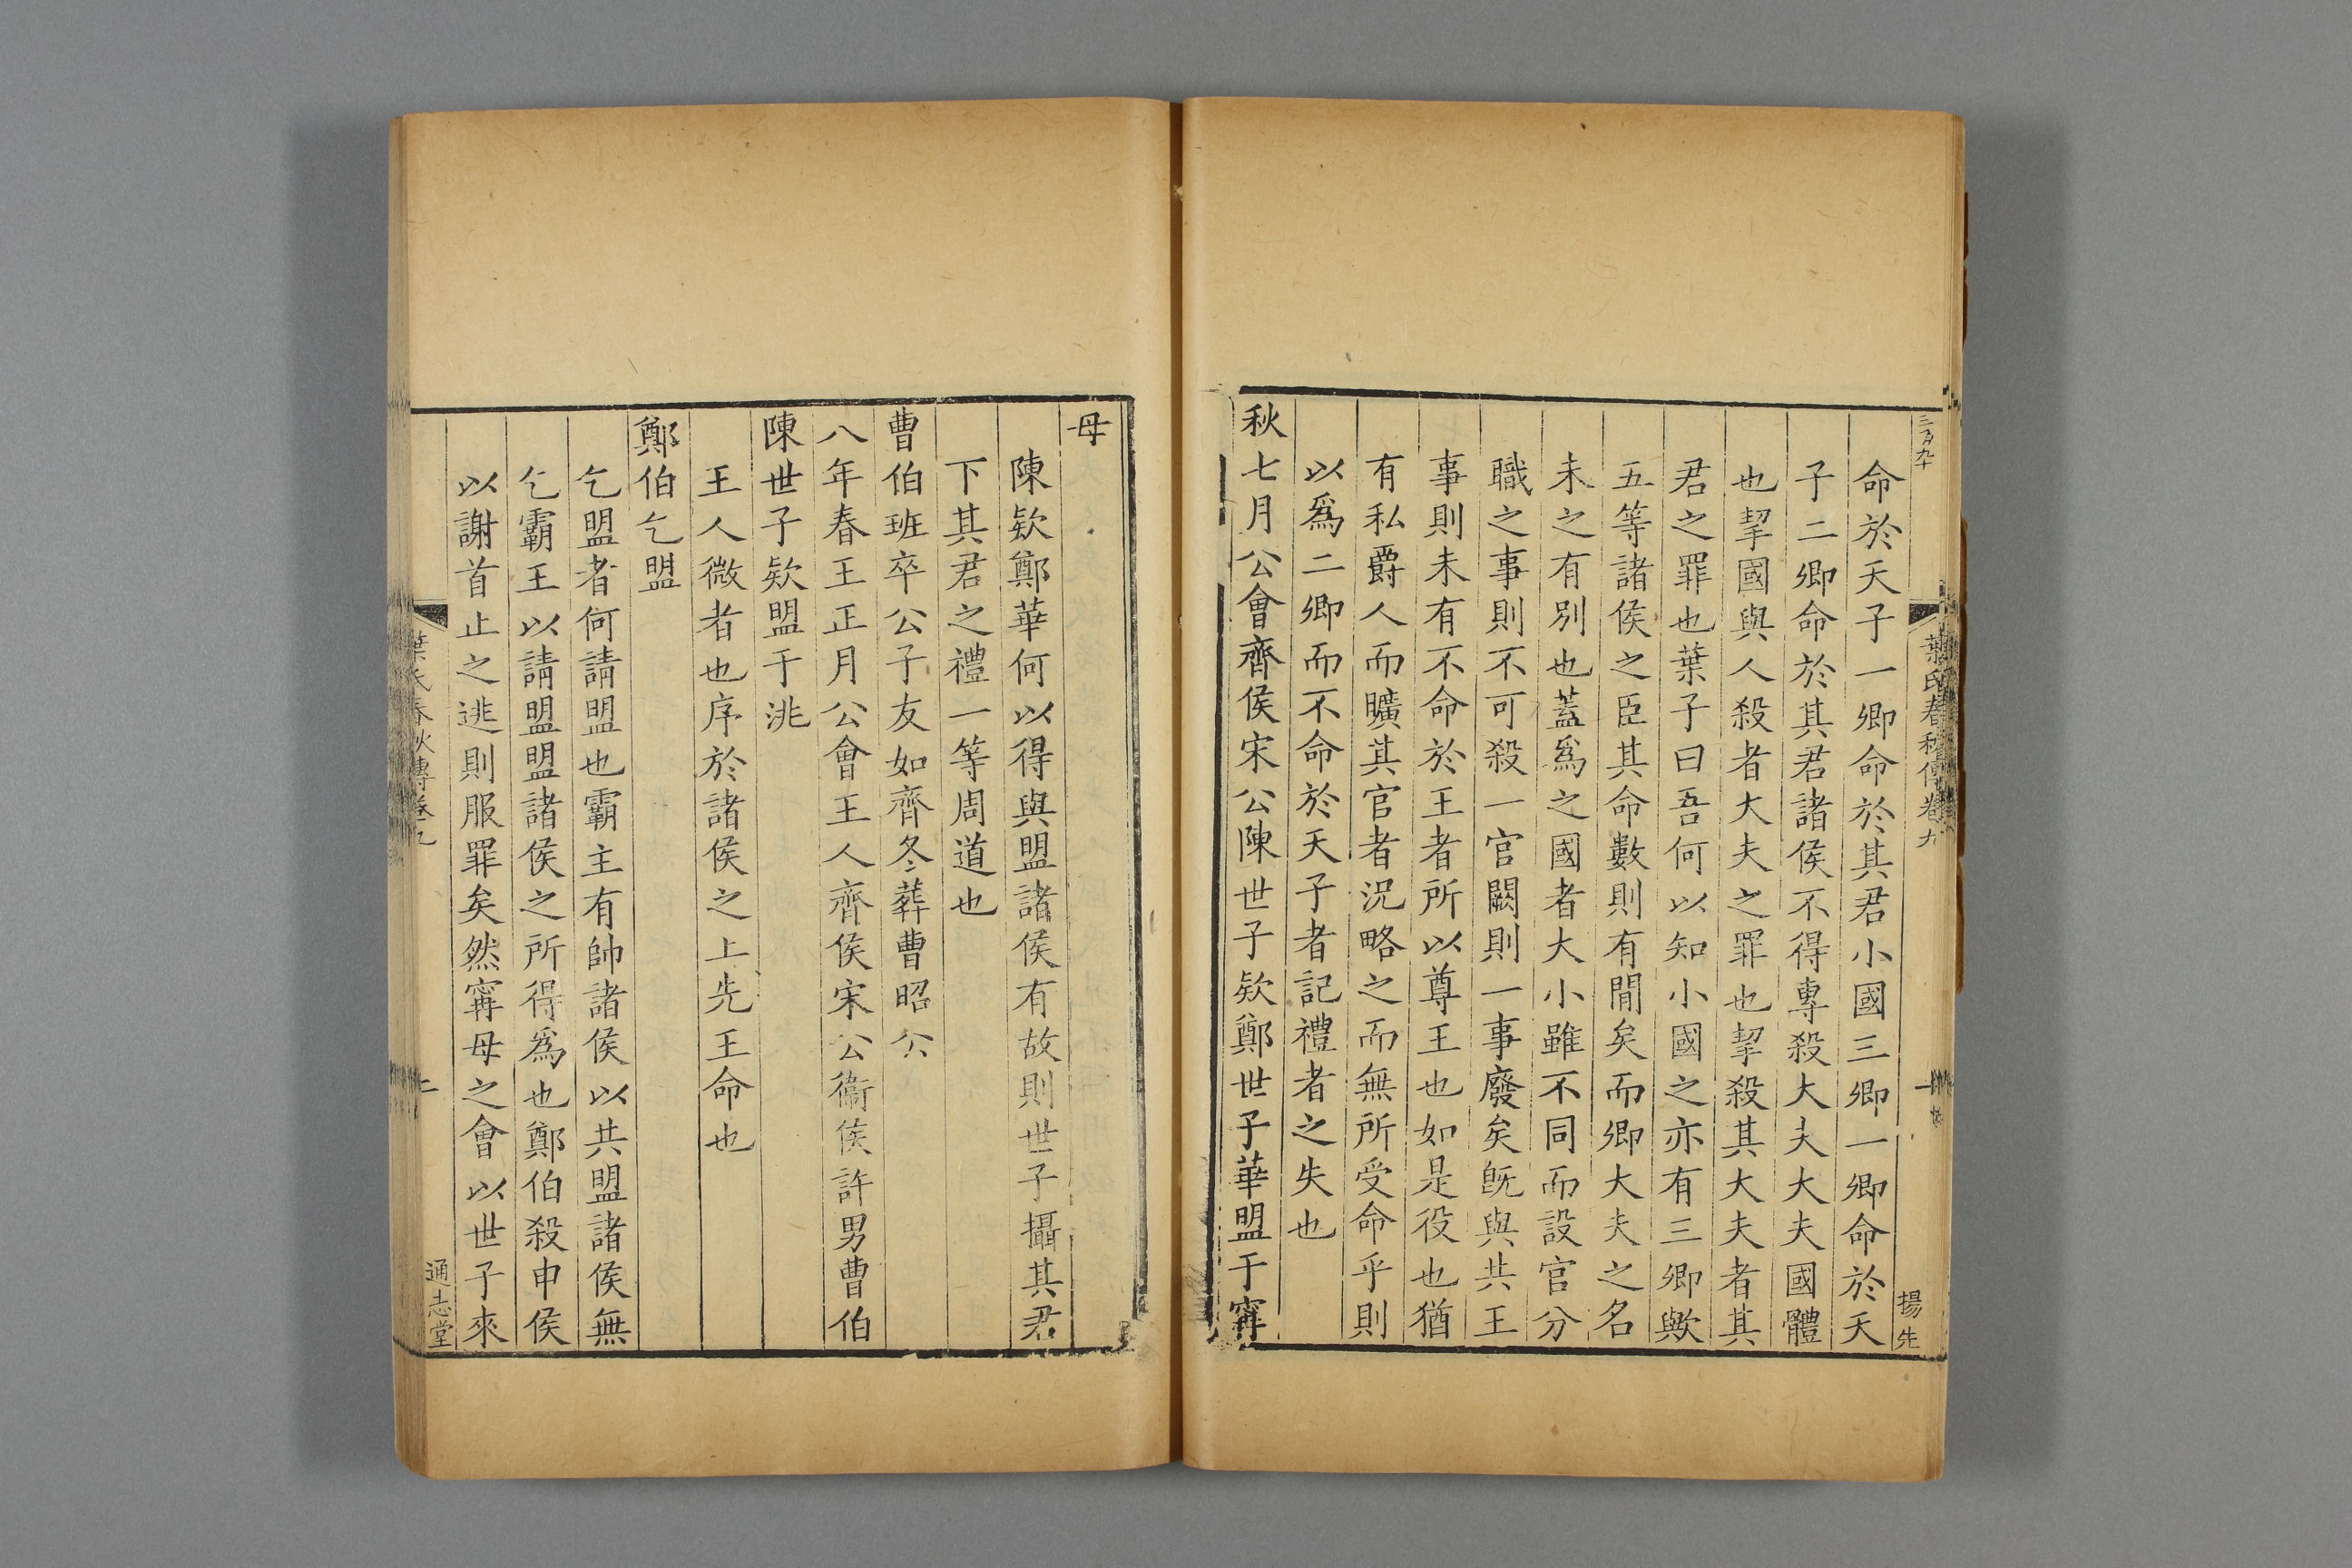 三百九十
葉氏春秋傳卷九
一
揚先
命於天子一卿命於其君小國三卿一卿命於天
子二卿命於其君諸侯不得專殺大夫大夫國體
也挈國與人殺者大夫之罪也挈殺其大夫者其
君之罪也葉子曰吾何以知小國之亦有三卿歟
五等諸侯之臣其命數則有閒矣而卿大夫之名
未之有別也蓋爲之國者大小雖不同而設官分
職之事則不可殺一官闕則一事廢矣旣與共王
事則未有不命於王者所以尊王也如是役也猶
有私爵人而曠其官者況略之而無所受命乎則
以爲二卿而不命於天子者記禮者之失也
秋七月公會齊侯宋公陳世子欵鄭世子華盟于甯
母
陳欵鄭華何以得與盟諸侯有故則世子攝其君
下其君之禮一等周道也
曹伯班卒公子友如齊冬葬曹昭公
八年春王正月公會王人齊侯宋公衞侯許男曹伯
陳世子欵盟于洮
王人微者也序於諸侯之上先王命也
鄭伯乞盟
乞盟者何請盟也霸主有帥諸侯以共盟諸侯無
乞霸王以請盟盟諸侯之所得爲也鄭伯殺申侯
以謝首止之逃則服罪矣然甯母之會以世子來
葉氏春秋傳卷九
通志堂